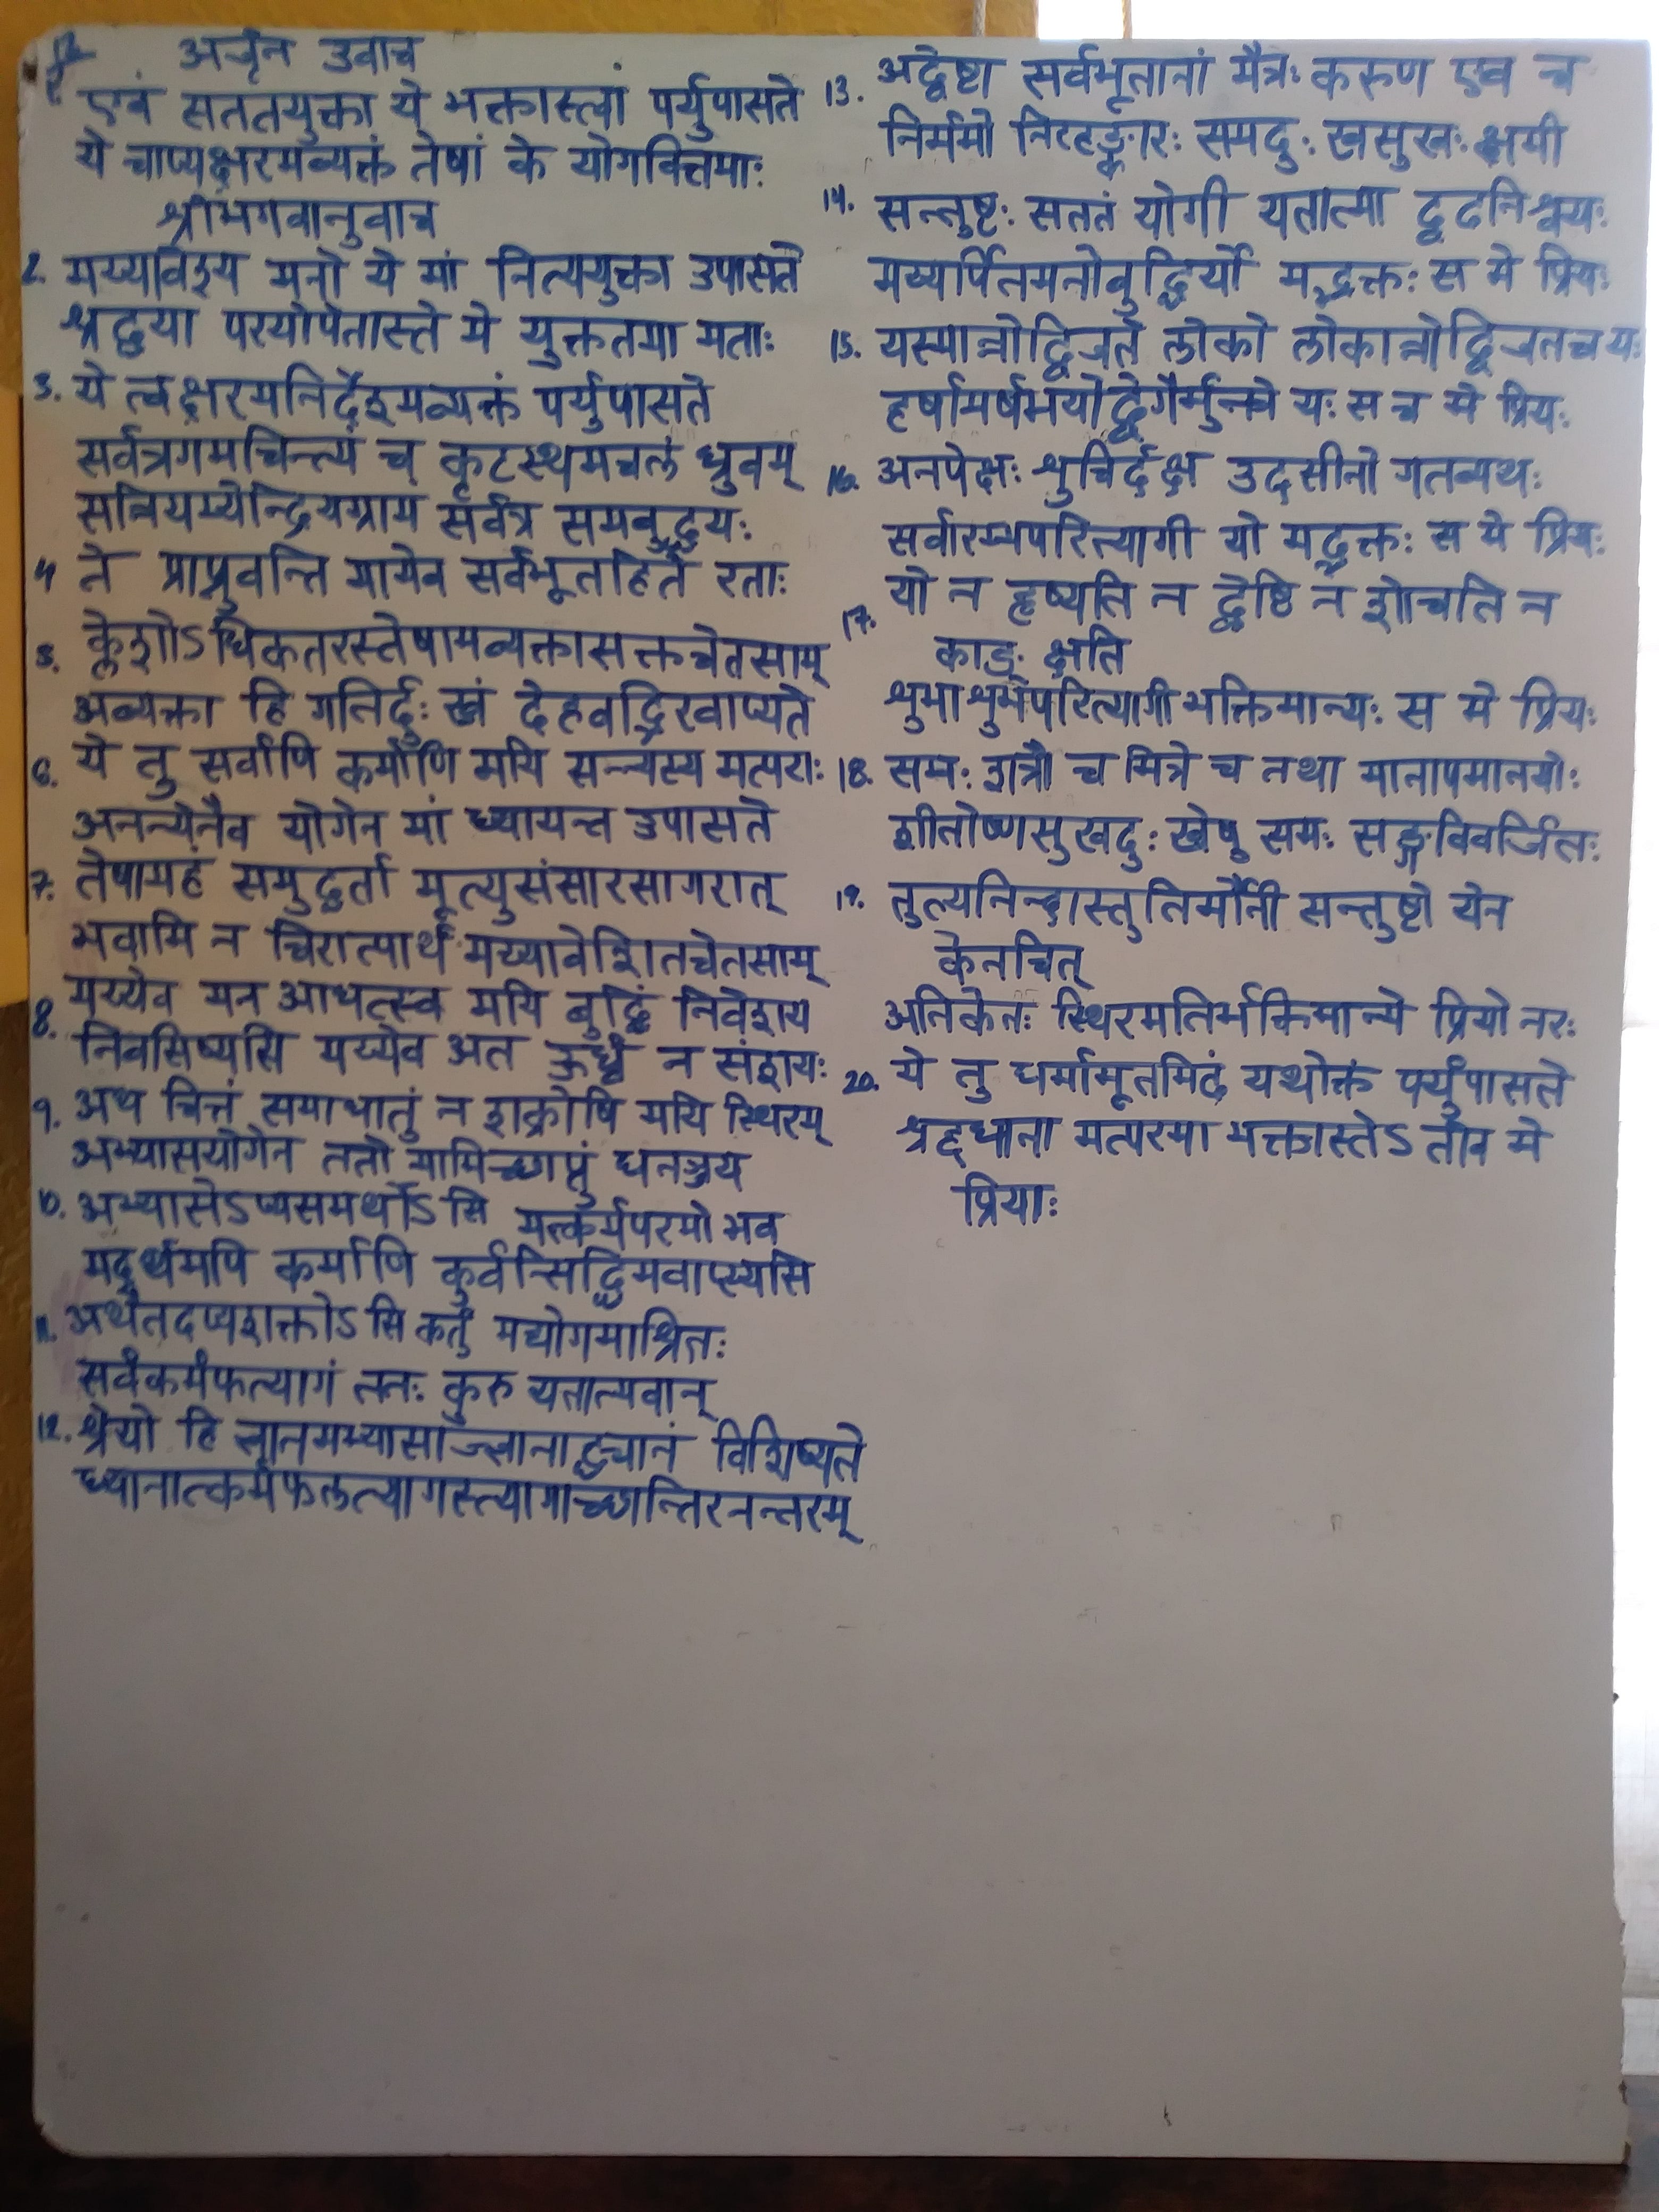 12
अर्जुन उवाच
एवं सततयुक्ता ये भक्तास्त्वां पर्युपासते
ये चाप्यक्षरमव्यक्तं तेषां के योगवित्तमाः
श्रीभगवानुवाच
2. मय्यावेश्य मनो ये मां नित्ययुक्ता उपासते
श्रद्धया परयोपेतास्ते मे युक्ततमा मताः
3. ये त्वक्षरमनिर्देश्यमव्यक्तं पर्युपासते
सर्वत्रगमचिन्त्यं च कूटस्थमचलं ध्रुवम्
सन्नियम्येन्द्रियग्रामं सर्वत्र समबुद्धयः
4 ते प्राप्नुवन्ति मामेव सर्वभूतहिते रताः
5. क्लेशोऽधिकतरस्तेषामव्यक्तासक्तचेतसाम्
अव्यक्ता हि गतिर्दुःखं देहवद्भिरवाप्यते
6. ये तु सर्वाणि कर्माणि मयि सन्न्यस्य मत्पराः
अनन्येनैव योगेन मां ध्यायन्त उपासते
7. तेषामहं समुद्धर्ता मृत्युसंसारसागरात्
भवामि न चिरात्पार्थ मय्यावेशितचेतसाम्
8. मय्येव मन आधत्स्व मयि बुद्धिं निवेशय
निवसिष्यसि मय्येव अत ऊर्ध्वं न संशयः
9. अथ चित्तं समाधातुं न शक्नोषि मयि स्थिरम्
अभ्यासयोगेन ततो मामिच्छाप्तुं धनञ्जय
10. अभ्यासेऽप्यसमर्थोऽसि मत्कर्मपरमो भव
मदर्थमपि कर्माणि कुर्वन्सिद्धिमवाप्स्यसि
11. अथैतदप्यशक्तोऽसि कर्तुं मद्योगमाश्रितः
सर्वकर्मफत्यागं ततः कुरु यतात्मवान्
12. श्रेयो हि ज्ञानमभ्यासाज्ज्ञानाद्ध्यानं विशिष्यते
ध्यानात्कर्मफलत्यागस्त्यागाच्छान्तिरनन्तरम्
13. अद्वेष्टा सर्वभूतानां मैत्रः करुण एव च
निर्ममो निरहङ्कारः समदुःखसुखः क्षमी
14. सन्तुष्टः सततं योगी यतात्मा दृढनिश्चयः
मय्यर्पितमनोबुद्धिर्यो मद्भक्तः स मे प्रियः
15. यस्मान्नोद्विजते लोको लोकान्नोद्विजतेच यः
हर्षामर्षभयोद्वेगैर्मुक्तो यः स च मे प्रियः
16. अनपेक्षः शुचिर्दक्ष उदसीनो गतव्यथः
सर्वारम्भपरित्यागी यो मद्भक्तः स मे प्रियः
17. यो न हृष्यति न द्वेष्टि न शोचति न
काङ्क्षति
शुभाशुभपरित्यागी भक्तिमान्यः स मे प्रियः
18. समः शत्रौ च मित्रे च तथा मानापमानयोः
शीतोष्णसुखदुःखेषु समः सङ्गविवर्जितः
19. तुल्यनिन्दास्तुतिर्मौनी सन्तुष्टो येन
केनचित्
अनिकेतः स्थिरमतिर्भक्तिमान्मे प्रियो नरः
20. ये तु धर्मामृतमिदं यथोक्तं पर्युपासते
श्रद्दधाना मत्परमा भक्तास्तेऽतीव मे
प्रियाः